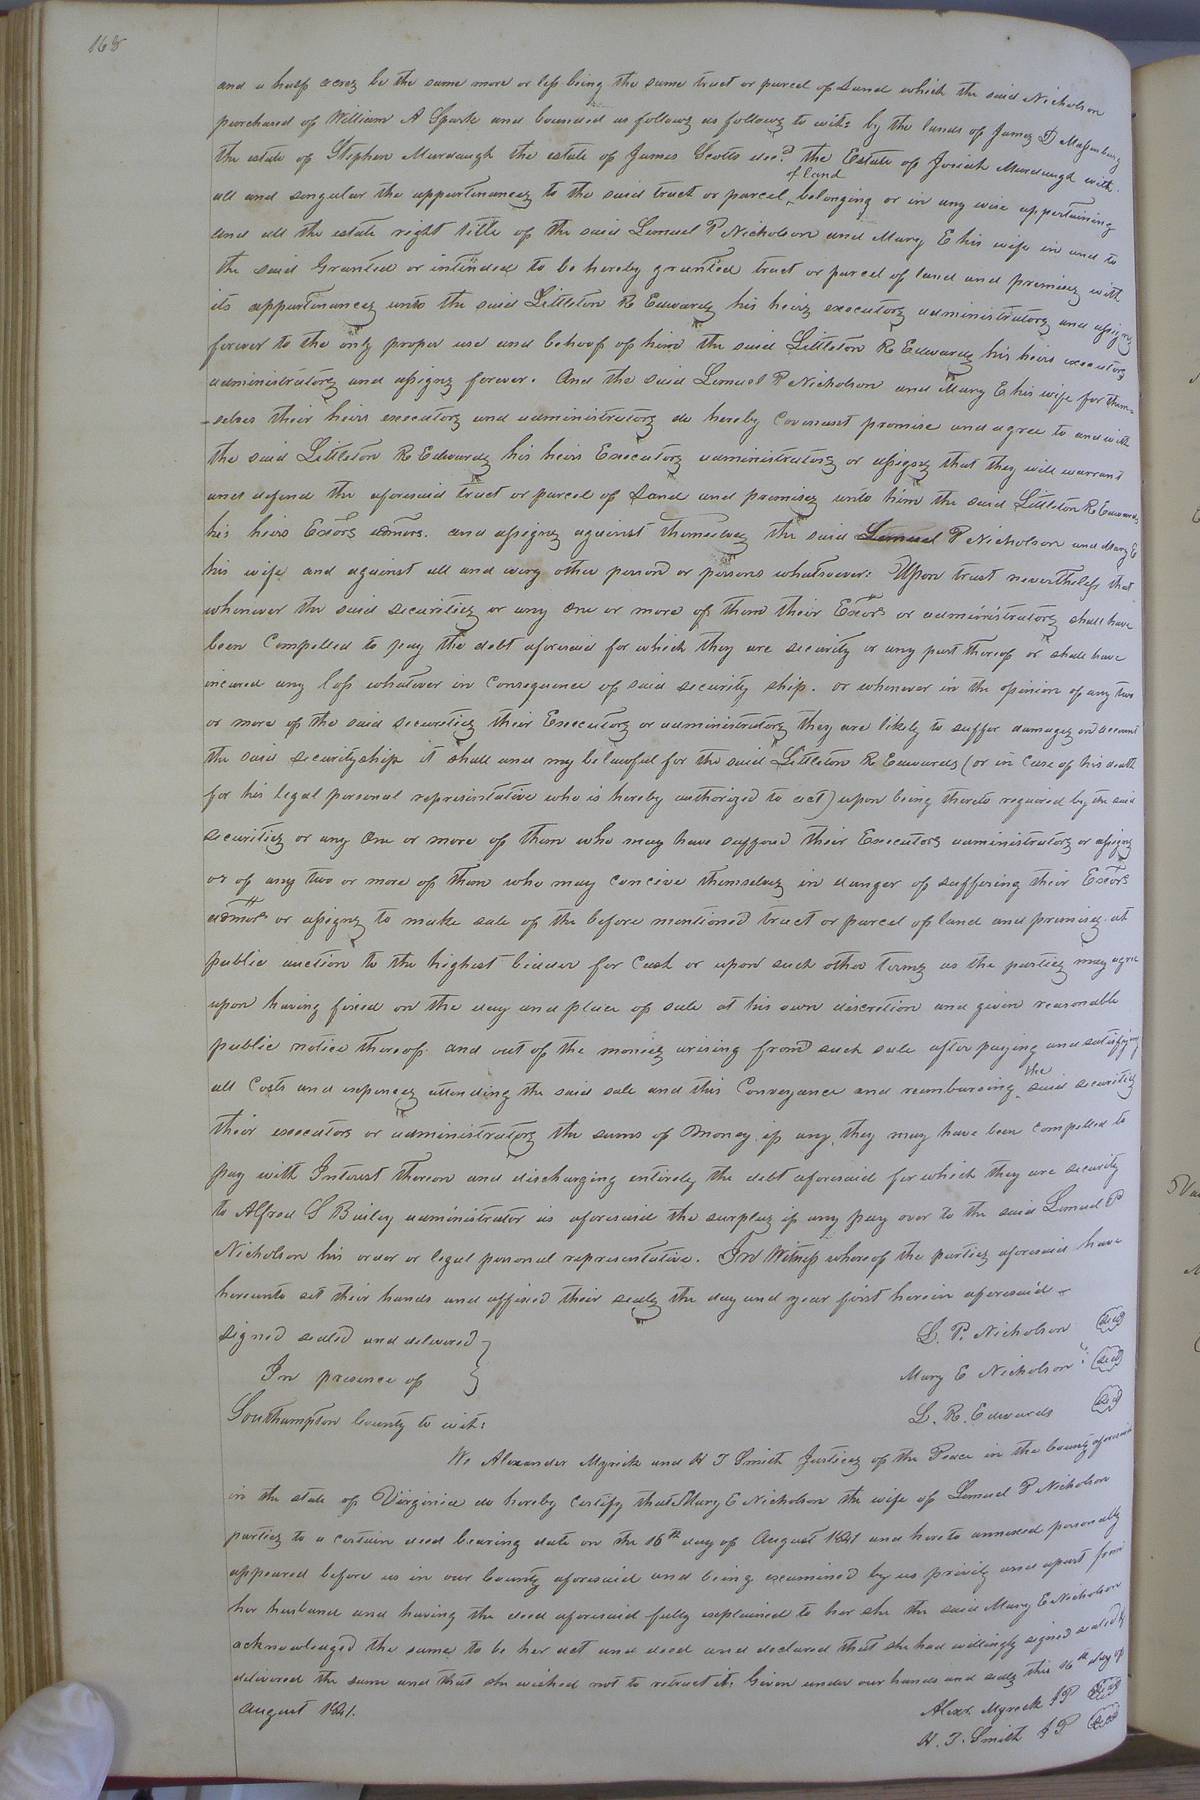 168
and a half acres be the same more or less being the same tract or parcel of Land which the said Nicholson
purchased of William A Spark and bounded as follows as follows to wit: by the lands of James D Massenburg
the estate of Stephen Murdaugh the estate of James Scotts decd. the Estate of Josiah Murdaugh with
all and singular the appurtenances to the said tract or parcel of land belonging or in any wise appertaining
and all the estate right title of the said Lemuel P Nicholson and Mary E his wife in and to
the said Granted or intended to be hereby granted tract or parcel of land and premises with
its appurtinances unto the said Littleton R Edwards his heirs executors administrators and assigns
forever to the only proper use and behoof of him the said Littleton R Edwards his heirs executors
administrators and assigns forever. And the said Lemuel P Nicholson and Mary E his wife for them-
-selves their heirs executors and administrators do hereby Covenant promise and agree to and with
the said Littleton R Edwards his heirs Executors administrators or assigns that they will warrant
and defend the aforesaid tract or parcel of Land and premises unto him the said Littleton R Edwards
his heirs Exors admors. and assigns against themselves the said Lemuel P Nicholson and Mary E
his wife and against all and every other person or persons whatsoever: Upon trust nevertheless that
whenever the said securities or any one or more of them their Exors or administrators shall have
been Compelled to pay the debt aforesaid for which they are security or any part thereof or shall have
incured any loss whatever in Consequence of said security ship. or whenever in the opinion of any two
or more of the said securities their Executors or administrators they are likely to suffer damages on account
the said securityship it shall and may be lawful for the said Littleton R Edwards (or in Case of his death
for his legal personal representative who is hereby authorized to act) upon being thereto required by the said
securities or any one or more of them who may have suffered their Executors administrators or assigns
or of any two or more of them who may concive themselves in danger of suffering their Exors
admors or assigns to make sale of the before mentioned tract or parcel of land and premises at
public auction to the highest bidder for Cash or upon such other terms as the parties may agree
upon having fixed on the day and place of sale at his own discretion and given reasonable
public notice thereof. and out of the monies arising from such sale after paying and satisfying
all Costs and expences attending the said sale and this Conveyance and reimbursing the said security
their executors or administrators the sums of Money if any they may have been compelled to
pay with Interest thereon and discharging entirely the debt aforesaid for which they are security
to Alfred S Bailey administrator as aforesaid the surplus if any pay over to the said Lemuel P
Nicholson his order or legal personal representative. In Witness whereof the parties aforesaid have
hereunto set their hands and affixed their seals the day and year first herein aforesaid
signed sealed and delivered } L. P. Nicholson (seal)
In presence of } Mary E Nicholson (seal)
Southampton County to wit: L. R. Edwards (seal)
We Alexander Myrick and H T Smith Justices of the Peace in the County aforesaid
in the state of Virginia do hereby Certify that Mary E Nicholson the wife of Lemuel P Nicholson
parties to a certain deed bearing date on the 16th day of August 1841 and hereto annexed personally
appeared before us in our County aforesaid and being examined by us privily and apart from
her husband and having the deed aforesaid fully explained to her she the said Mary E Nicholson
acknowledged the same to be her act and deed and declared that she had willingly signed sealed &
delivered the same and that she wished not to retract it. Given under our hands and seals this 16th day of
August 1841. Alexr. Myrick JP (seal)
H. T. Smith JP (seal)